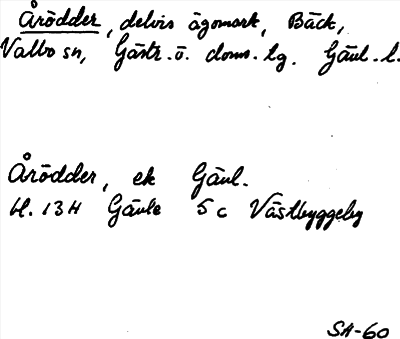 Årödder, delvis ägomark, Bäck,
Valbo sn, Gästr. ö. doms. lg. Gävl. l.
Årödder, ek Gävl.
bl. 13H Gävle 5 c Västbyggeby
SH-60